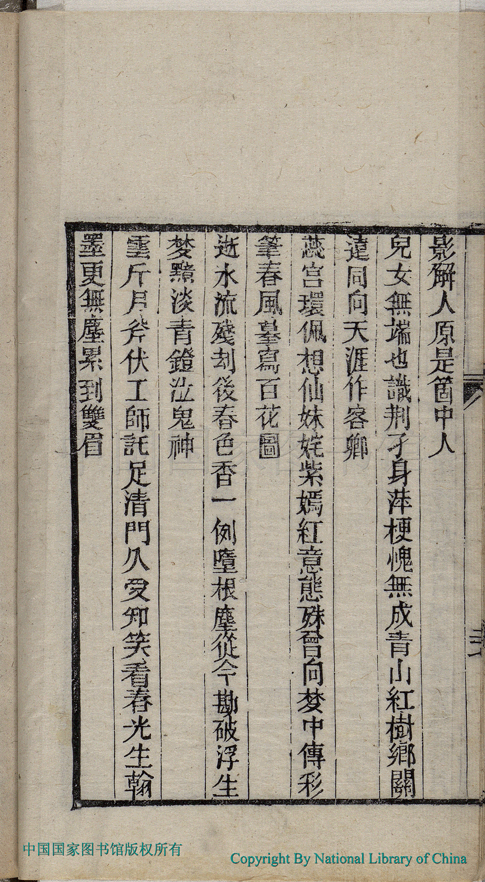 影解人原是箇中人
兒女無端也識荆孑身萍梗愧無成青山紅樹鄉關
遠同向天涯作客鄉
蕊宮環佩想仙姝姹紫嫣紅意態殊曾向夢中傳彩
筆春風摹寫百花圖
逝水流殘刧後春色香一例墮根塵從今勘破浮生
夢黯淡青鐙泣鬼神
雲斤月斧伏工師託足清門久受知笑看春光生翰
墨更無塵累到雙眉
中国国家图书馆版权所有
Copyright By National Library of China